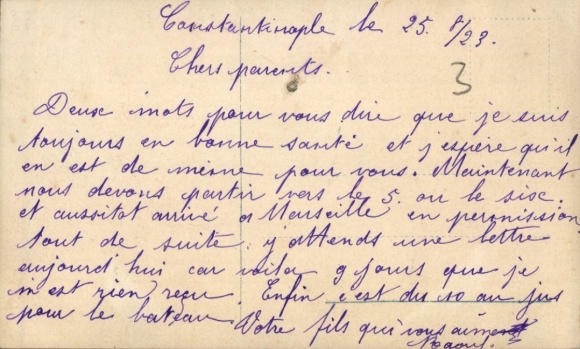 Constantinople le 25. 8/23.
Chers parents.
3
Deux mots pour vous dire que je suis
toujours en bonne santé et j'espère qu'il
en est de même pour vous. Maintenant
nous devons partir vers le 5. ou le six.
et aussitot arrivé a Marseille en permission
tout de suite. j'attends une lettre
aujourd'hui car voila 9 jours que je
n'est rien reçu. Enfin c'est du 10 au jus
pour le bateau.
Votre fils qui vous aime
Raoul.